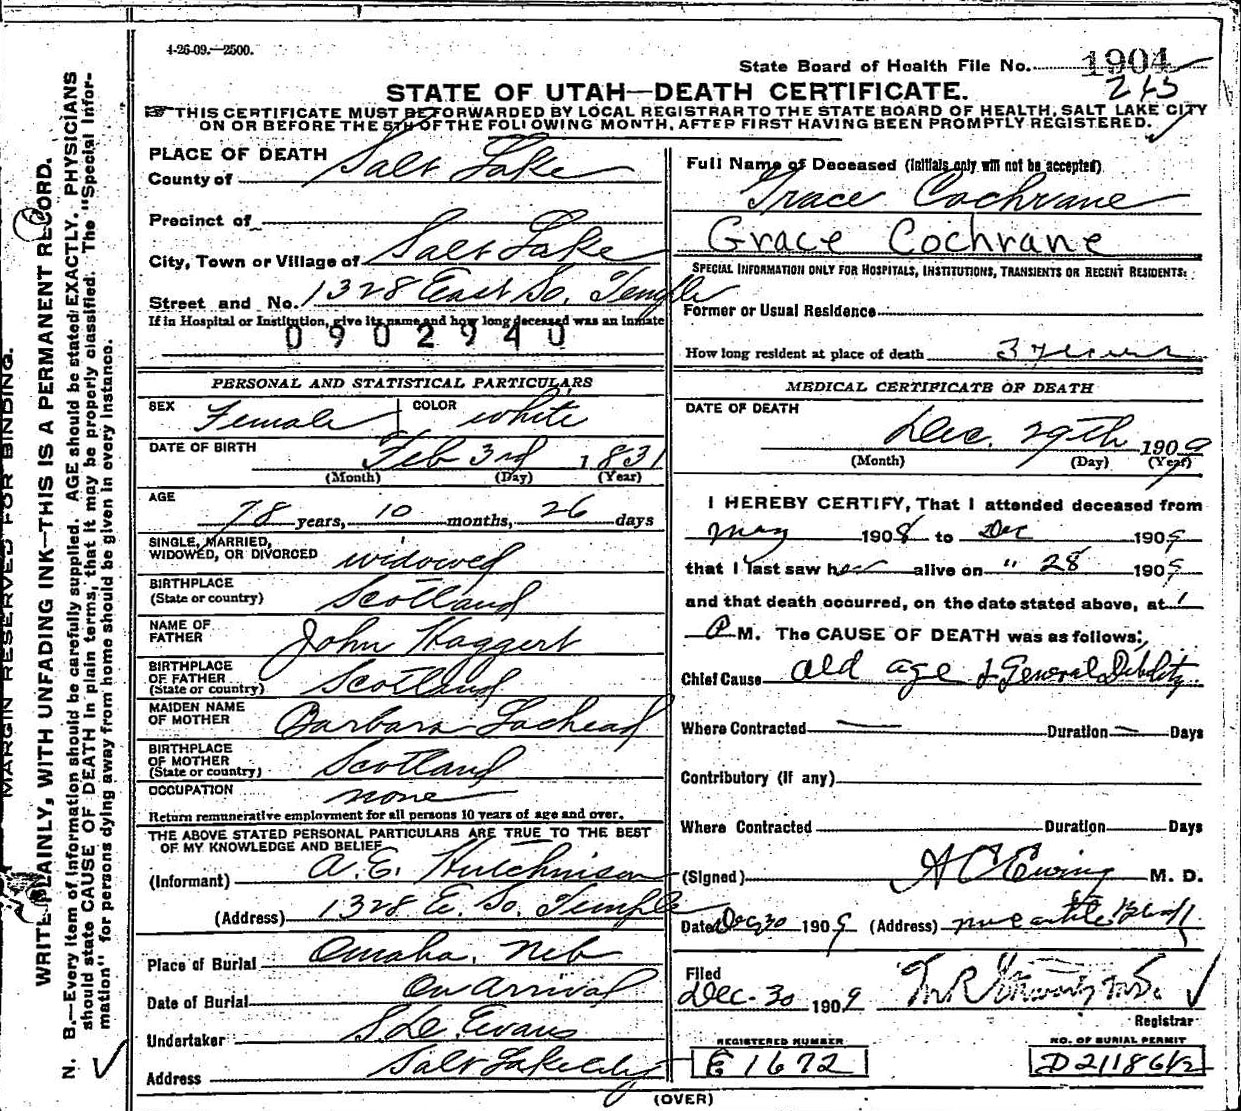 4-26-09.—2500.
State Board of Health File No. 1904
243
STATE OF UTAH—DEATH CERTIFICATE.
THIS CERTIFICATE MUST BE FORWARDED BY LOCAL REGISTRAR TO THE STATE BOARD OF HEALTH, SALT LAKE CITY
ON OR BEFORE THE 5TH OF THE FOLLOWING MONTH, AFTER FIRST HAVING BEEN PROMPTLY REGISTERED.
PLACE OF DEATH
County of Salt Lake
Precinct of
City, Town or Village of Salt Lake
Street and No. 1328 East So. Temple
If in Hospital or Institution, give its name and how long deceased was an Inmate
0902940
PERSONAL AND STATISTICAL PARTICULARS
SEX Female COLOR white
DATE OF BIRTH Feb 3rd 1831
(Month) (Day) (Year)
AGE
78 years, 10 months, 26 days
SINGLE, MARRIED,
WIDOWED, OR DIVORCED widowed
BIRTHPLACE
(State or country) Scotland
NAME OF
FATHER John Haggert
BIRTHPLACE
OF FATHER
(State or country) Scotland
MAIDEN NAME
OF MOTHER Barbara Lachead
BIRTHPLACE
OF MOTHER
(State or country) Scotland
OCCUPATION none
Return remunerative employment for all persons 10 years of age and over.
THE ABOVE STATED PERSONAL PARTICULARS ARE TRUE TO THE BEST
OF MY KNOWLEDGE AND BELIEF
(Informant) A. E. Hutchnison
(Address) 1328 E. So. Temple
Place of Burial Omaha, Neb
Date of Burial On Arrival
Undertaker Evans
Address Salt Lake City
Full Name of Deceased (Initials only will not be accepted)
Grace Cochrane
Grace Cochrane
SPECIAL INFORMATION ONLY FOR HOSPITALS, INSTITUTIONS, TRANSIENTS OR RECENT RESIDENTS:
Former or Usual Residence
How long resident at place of death 3 years
MEDICAL CERTIFICATE OF DEATH
DATE OF DEATH
Dec. 29th 1909
(Month) (Day) (Year)
I HEREBY CERTIFY, That I attended deceased from
May 1908 to Dec 1909
that I last saw her alive on " 28 1909
and that death occurred, on the date stated above, at 1
P M. The CAUSE OF DEATH was as follows:
Chief Cause old age & General Debility
Where Contracted — Duration — Days
Contributory (if any)
Where Contracted Duration Days
(Signed) A C Ewing M. D.
Date Dec 30 1909 (Address) Mercantile Block
Filed
Dec. 30 1909
Registrar
REGISTERED NUMBER
E 1672
NO. OF BURIAL PERMIT
D 21186 1/2
(OVER)
MARGIN RESERVED FOR BINDING.
WRITE PLAINLY, WITH UNFADING INK—THIS IS A PERMANENT RECORD.
N. B.—Every item of information should be carefully supplied. AGE should be stated EXACTLY. PHYSICIANS
should state CAUSE OF DEATH in plain terms, that it may be properly classified. The "Special Infor-
mation" for persons dying away from home should be given in every instance.